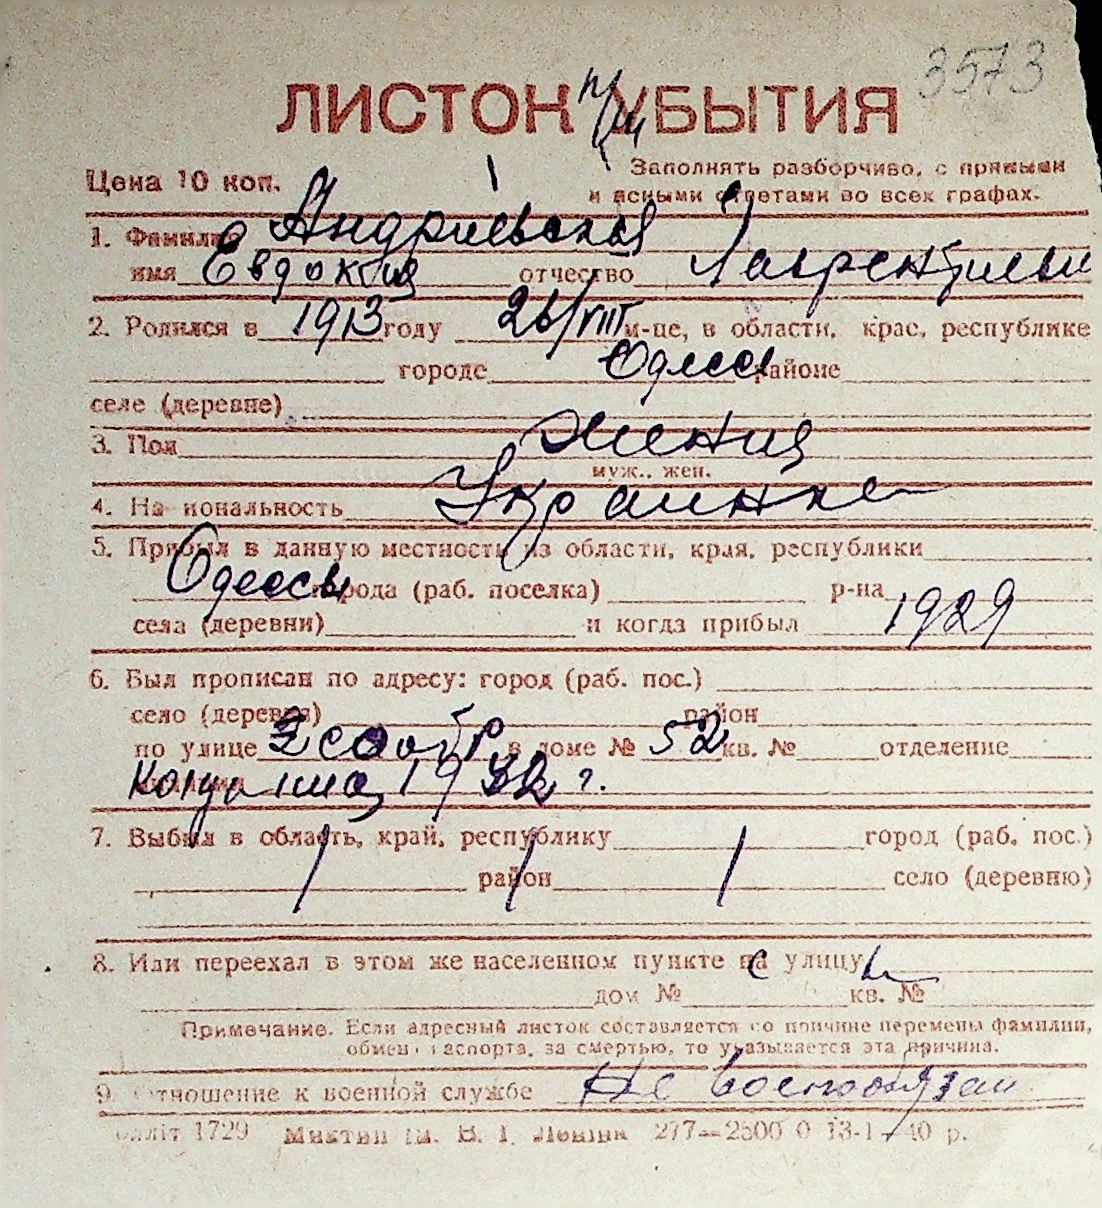 3573
ЛИСТОК УБЫТИЯ
Цена 10 коп.
Заполнять разборчиво, с прямыми
и ясными ответами во всех графах.
1. Фамилия Андриевская
имя Евдокия отчество Лаврентьевн
2. Родился в 1913 году 26/VIII м-це, в области, крае, республике
городе Одесса районе
селе (деревне)
3. Пол женщ
муж., жен.
4. Национальность Украинка
5. Прибыл в данную местность из области, края, республики
Одессы города (раб. поселка) р-на
села (деревни) и когда прибыл 1929
6. Был прописан по адресу: город (раб. пос.)
село (деревня) район
по улице в доме № 52 кв. № отделение
19 г.
7. Выбыл в область, край, республику город (раб. пос.)
район село (деревню)
8. Или переехал в этом же населенном пункте на улицу
дом № кв. №
Примечание. Если адресный листок составляется по причине перемены фамилии,
обмена паспорта, за смертью, то указывается эта причина.
9. Отношение к военной службе Не военнообязан
1729 ім. В. І. Леніна 277—2500 0 13-1-40 р.